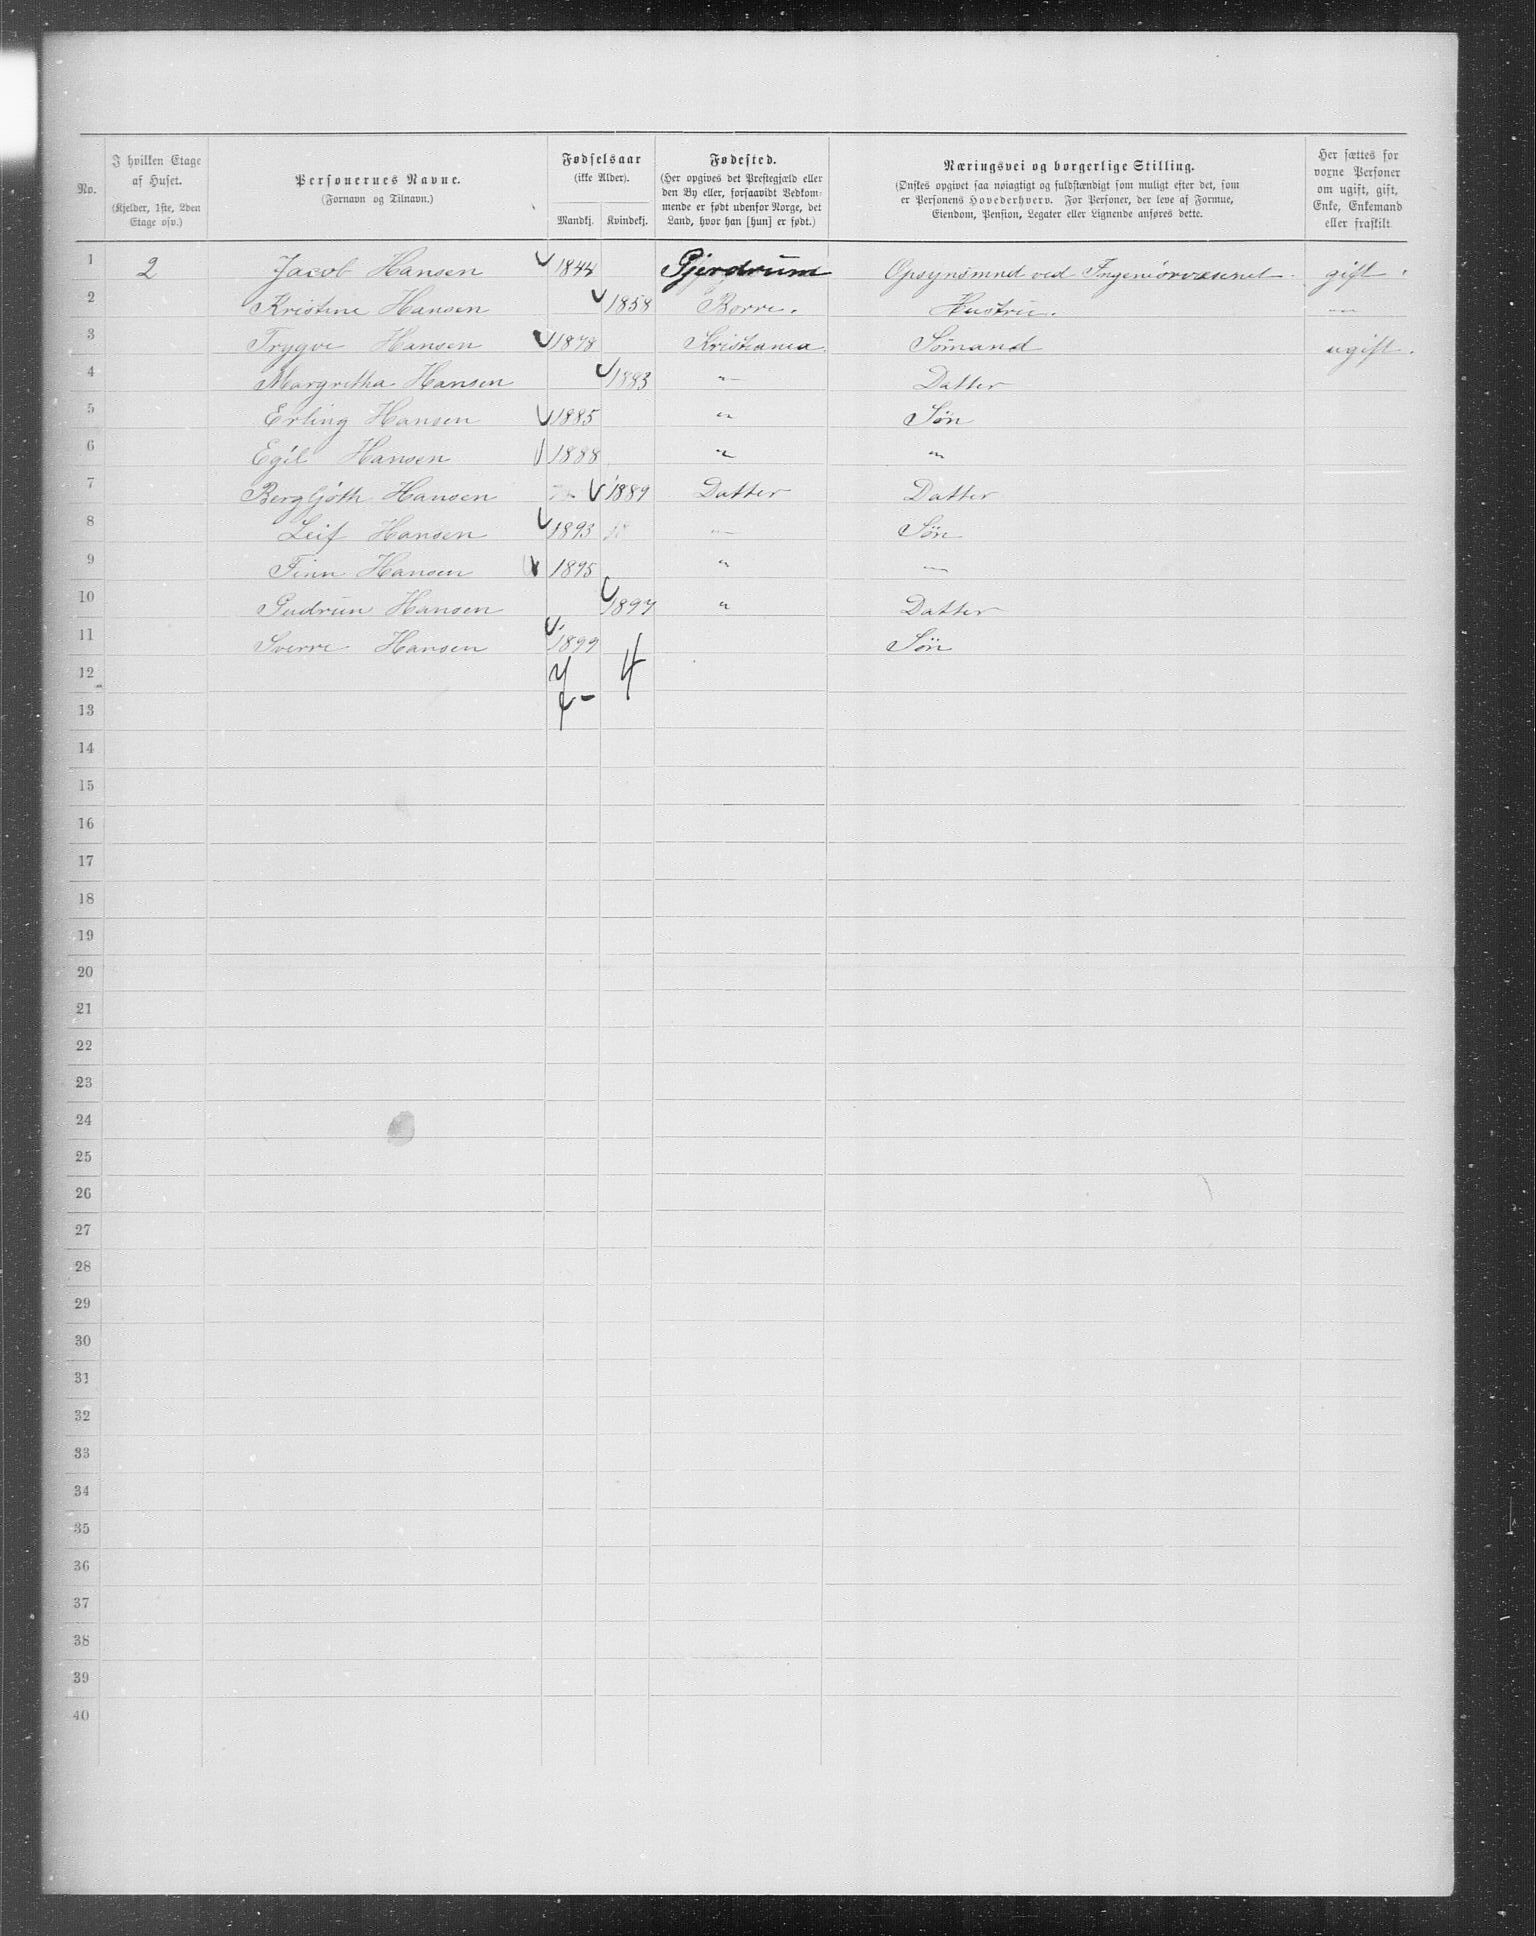 No. | I hvilken Etage af Huset. (Kjelder, 1ste, 2den Etage osv.) | Personernes Navne. (Fornavn og Tilnavn.) | Fødselsaar (ikke Alder). Mandkj. | Kvindekj. | Fødested. (Her opgives det Prestegjæld eller den By eller, forsaavidt Vedkommende er født udenfor Norge, det Land, hvor han [hun] er født.) | Næringsvei og borgerlige Stilling. (Ønskes opgivet saa nøiagtigt og fuldstændigt som muligt efter det, som er Personens Hovederhverv. For Personer, der leve af Formue, Eiendom, Pension, Legater eller Lignende anføres dette. | Her sættes for voxne Personer om ugift, gift, Enke, Enkemand eller fraskilt
1 2 Jacob Hansen 1844 Gjerdrum Opsynsmnd ved Ingeniörvæsenet gift
2 Kristine Hansen 1858 Borre. Hustru. -"-
3 Trygve Hansen 1878 Kristiania. Sømand ugift.
4 Margretha Hansen 1883 -"- Datter
5 Erling Hansen 1885 -"- Søn
6 Egil Hansen 1888 -"- -"-
7 Bergljöth Hansen 1889 Datter Datter
8 Leif Hansen 1893 -"- Søn
9 Finn Hansen 1895 -"- -"-
10 Gudrun Hansen 1897 -"- Datter
11 Sverre Hansen 1899 Søn
12 4
13
14
15
16
17
18
19
20
21
22
23
24
25
26
27
28
29
30
31
32
33
34
35
36
37
38
39
40